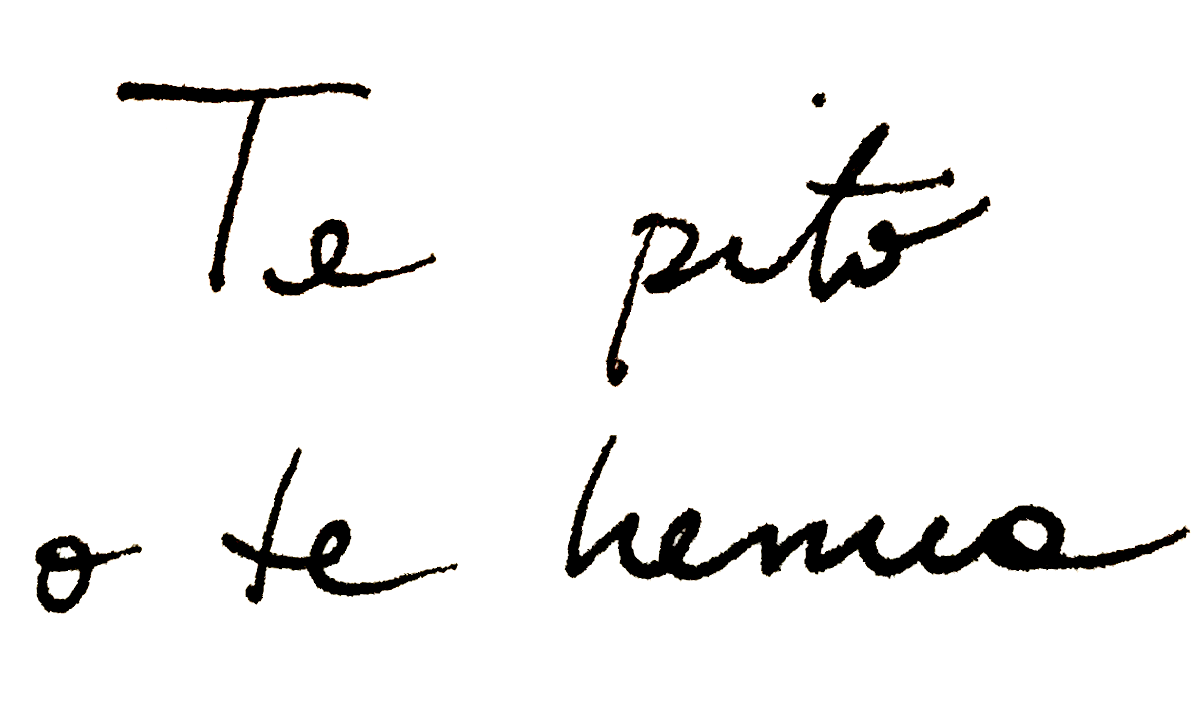 Te pito
o te henua